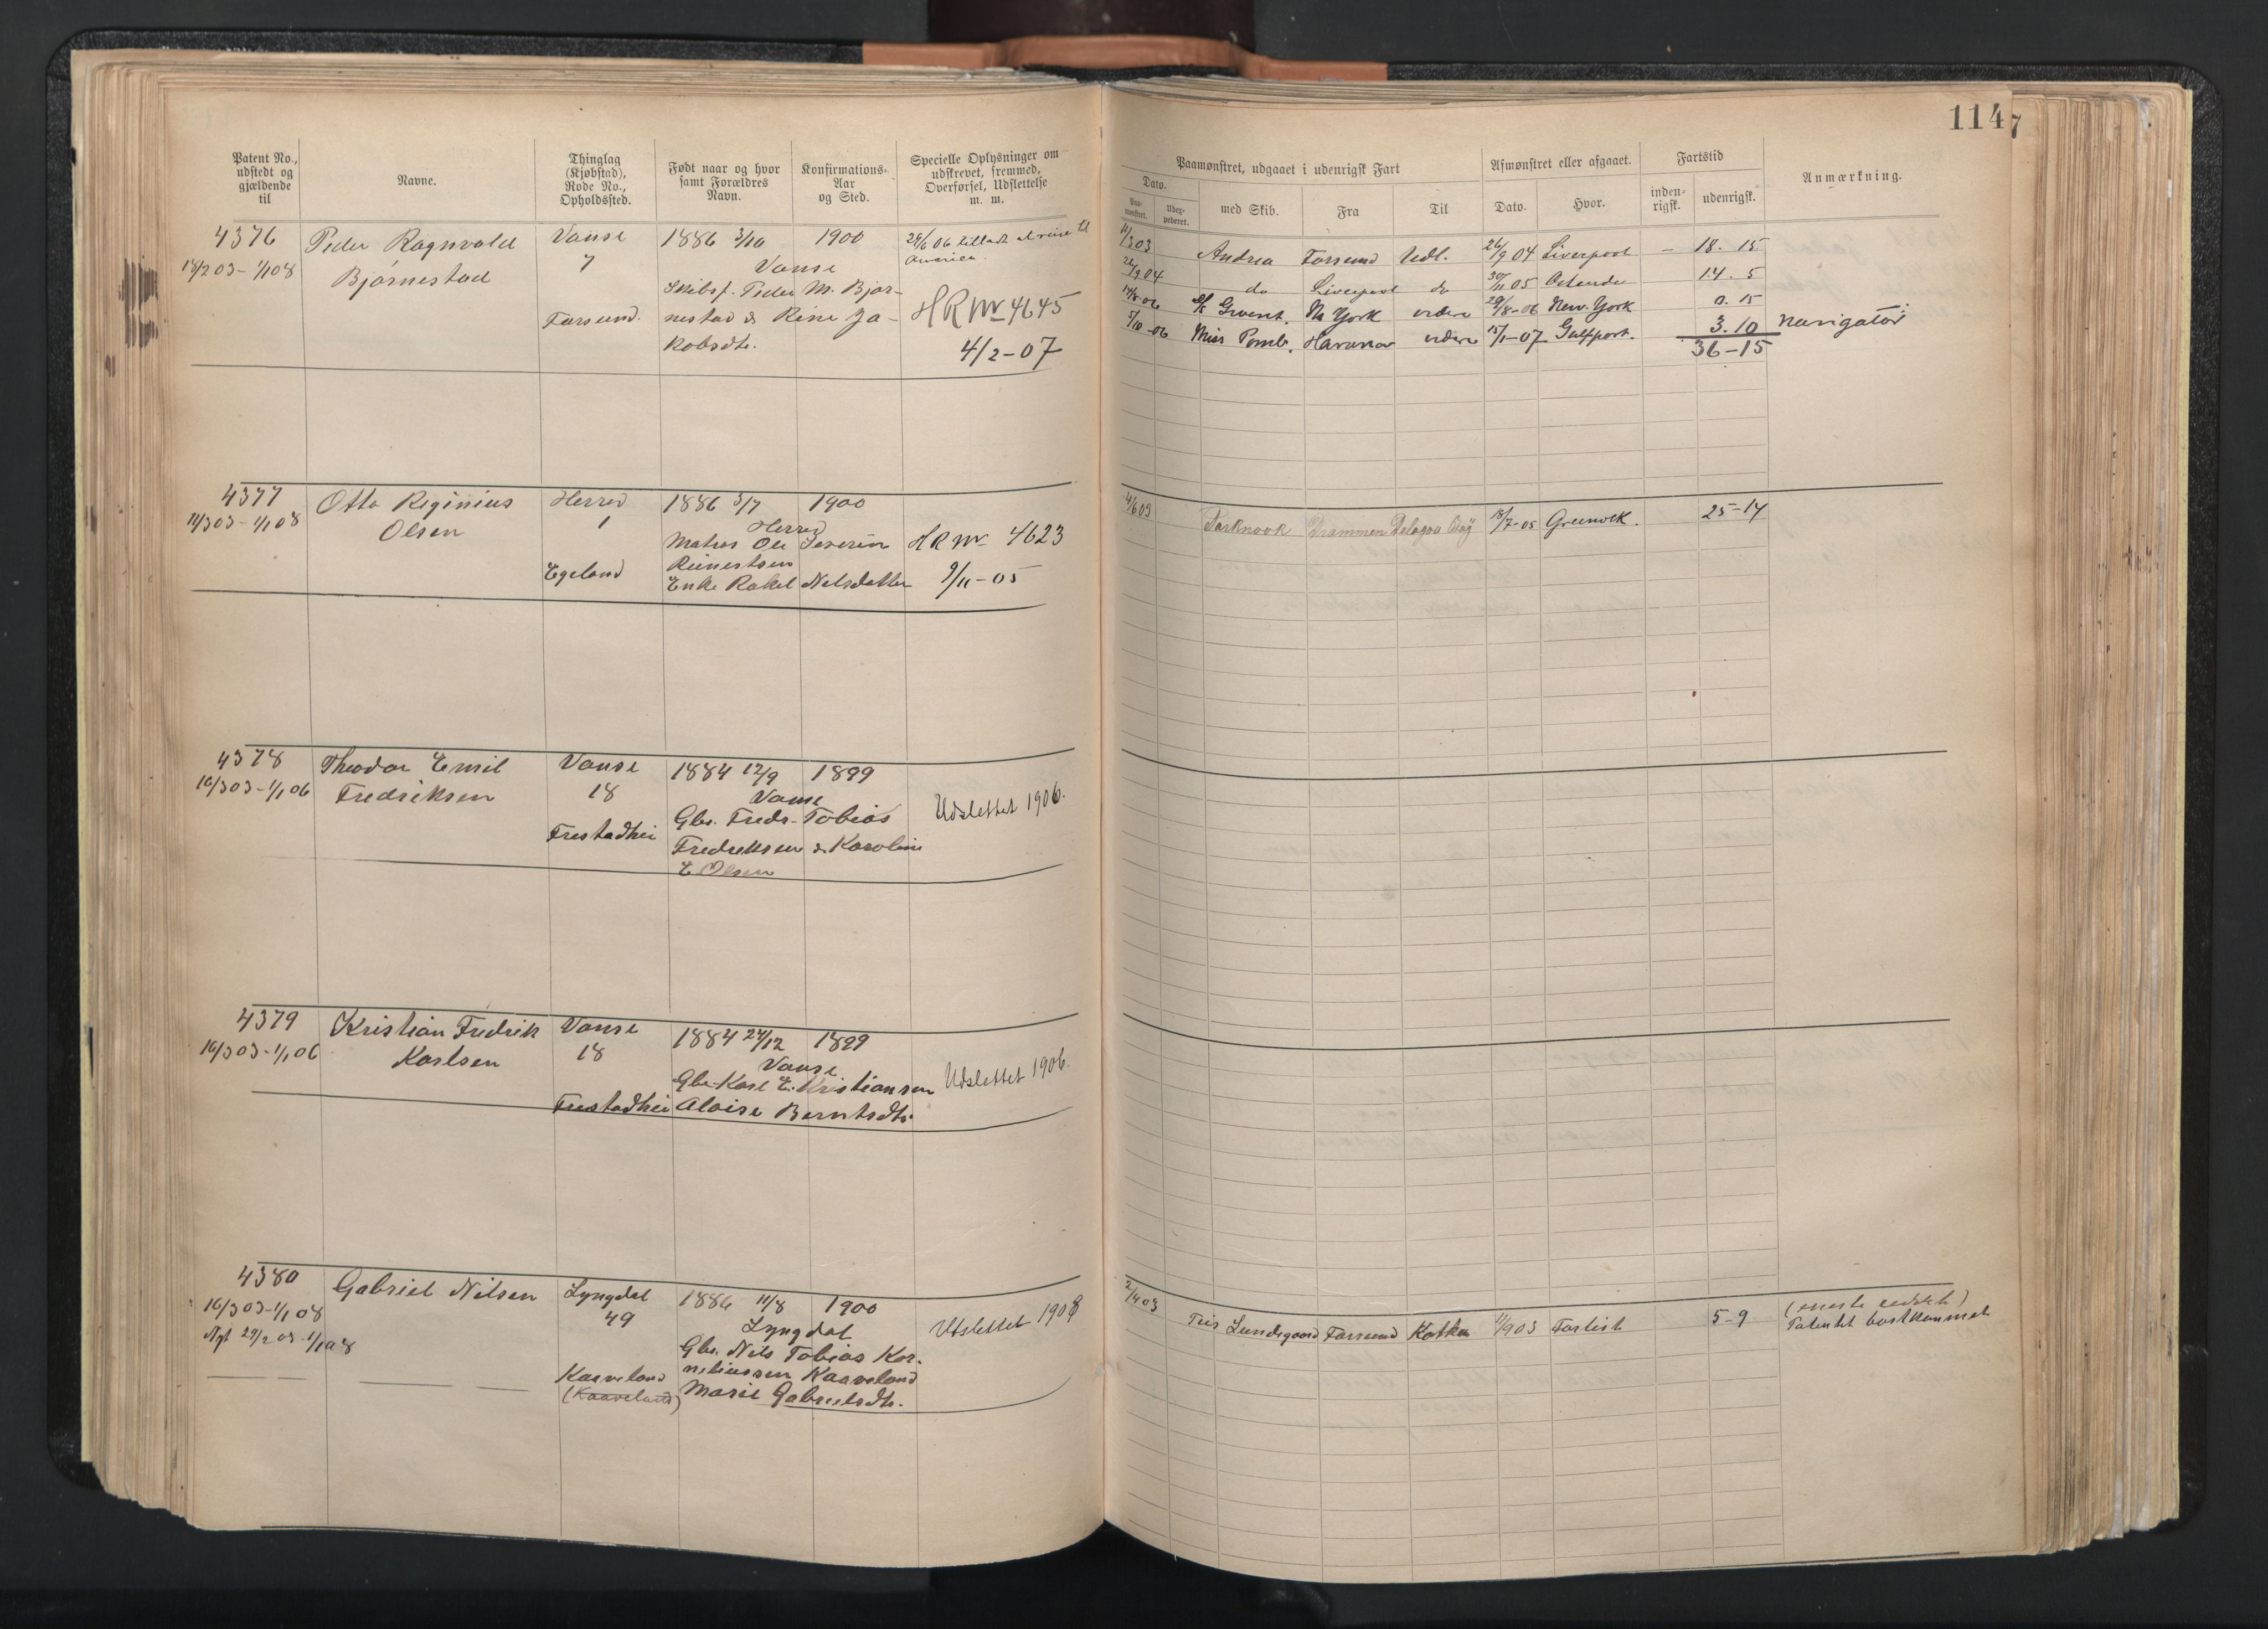 114
7
Patent No., udstedt og gjældende til
Navne.
Thinglag (Kjøbstad), Rode No., Opholdssted.
Født naar og hvor samt Forældres Navn.
Konfirmations-Aar og Sted.
Specielle Oplysninger om udskrevet, fremmed, Overførsel, Udslettelse m. m.
Paamønstret, udgaaet i udenrigsk Fart
Afmønstret eller afgaaet.
Fartstid
Anmærkning.
Dato.
med Skib.
Fra
Til
Dato.
Hvor.
inden-rigsk.
udenrigsk.
4376 Peder Ragnvald Vanse 1886 3/10 1900 24/6 06 tilladt at reise til
18/2 03 - 1/1 08 Bjørnestad 7 Vanse
Skibsf. Peder M. Bjør-
Farsund. nestad & Rine Ja- HRNr 4645
kobsdtr. 4/2-07
11/3 03 Andrea Farsund Udl. 26/9 04 Liverpool - 18. 15
26/9 04 do Liverpool do 30/11 05 Ostende 14. 5
14/8-06 N York videre 29/8-06 New-York 0. 15
5/10-06 Miss Pomb. Havana videre 15/1-07 Gulfport. 3. 10 Navigatør
36-15
4377 Otto Reginius Herred 1886 3/7 1900
14/3 03 - 1/1 08 Olsen 1 Herred
Matros Ole Severin HRNr 4623
Reinertsen
Egeland Enke Rakel Nelsdatter 9/11-05
4/6 03 Farknook Drammen Delagoa Bay 18/7-05 Greenock. 25-14
4378 Theodor Emil Vanse 1884 12/9 1899
16/3 03 - 1/1 06 Fredriksen 18 Vanse
Gbr. Fredr. Tobias Udslettet 1906.
Frestadhei Fredriksen & Karoline
E Olsen
4379 Kristian Fredrik Vanse 1884 24/12 1899
16/3 03 - 1/1 06 Karlsen 18 Vanse
Gbr Karl E. Kristiansen Udslettet 1906.
Frestadhei Aloise Berntsdtr.
4380 Gabriel Nilsen Lyngdal 1886 11/8 1900
16/3 03 - 1/1 08 49 Lyngdal Utslettet 1908
Nyt 29/2 03 - 1/1 08 Gbr. Nils Tobias Kor-
Kaaveland neliussen Kaaveland
(Kaaveland) Marie Gabrielsdtr.
2/4 03 Lundegaard Farsund Kotka 11/9 03 5-9
Patentet bortkommet